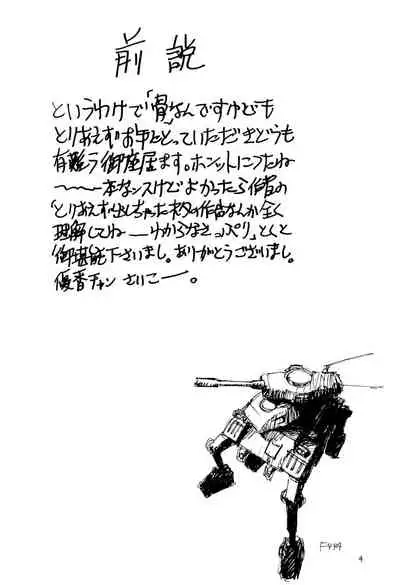 前説
というわけで「骨」なんですけども
とりあえずお手にとっていただきどうも
有難う御座居ます。ホントにこったね
〜〜〜本なンスけどよかったら作者の
「とりあえず出しちゃったネタの作者なんか全く
理解してねーーわからなさっぷり」をとくと
御堪能下さいまし。ありがとうございまし。
優香チャン さいこーー。
4